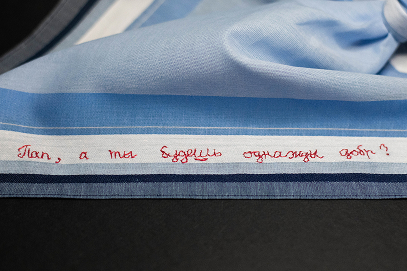 Пап, а ты будешь однажды добр?